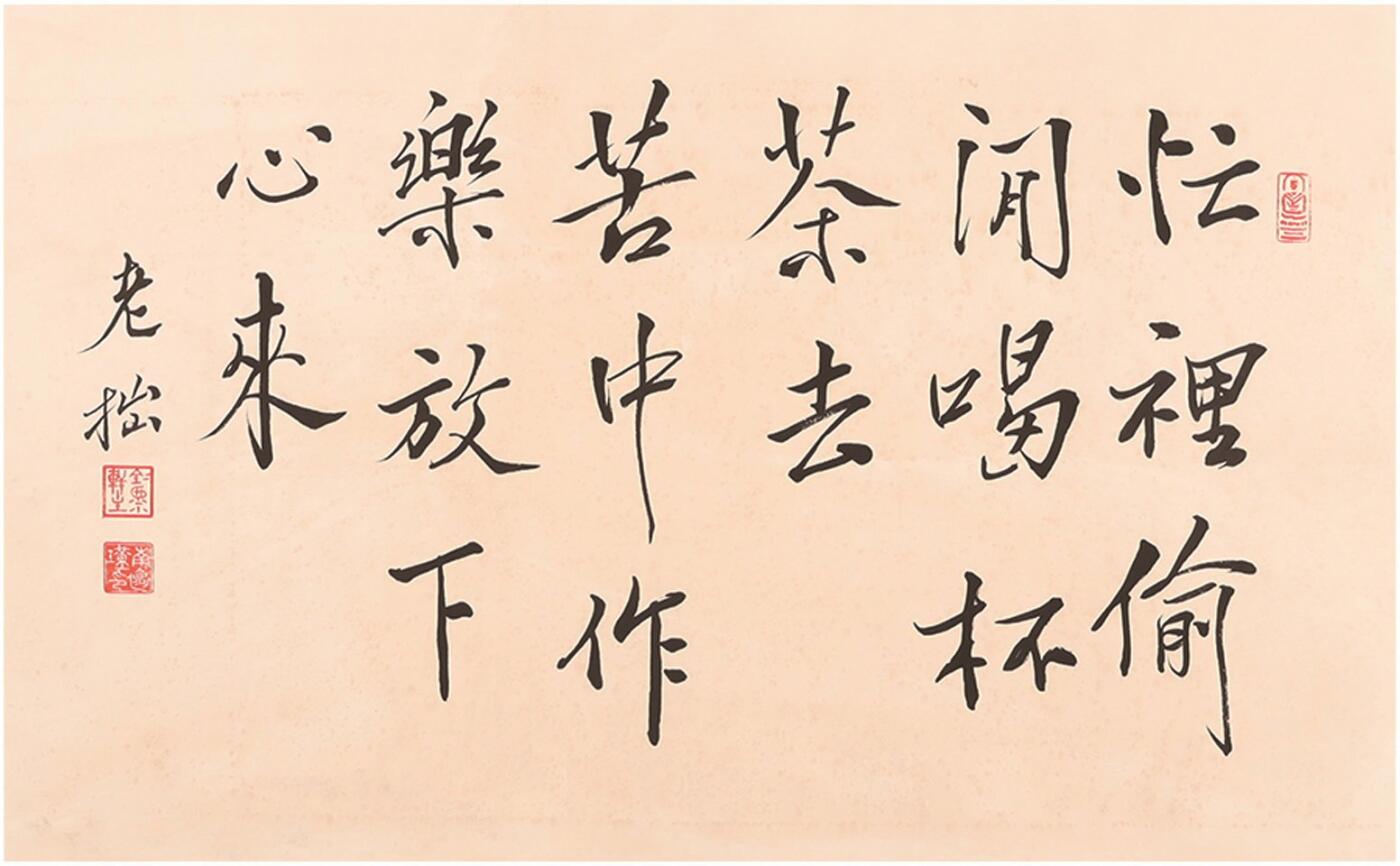 忙裡偷
閒喝杯
茶去
苦中作
樂放下
心來
老拙
南懷瑾印